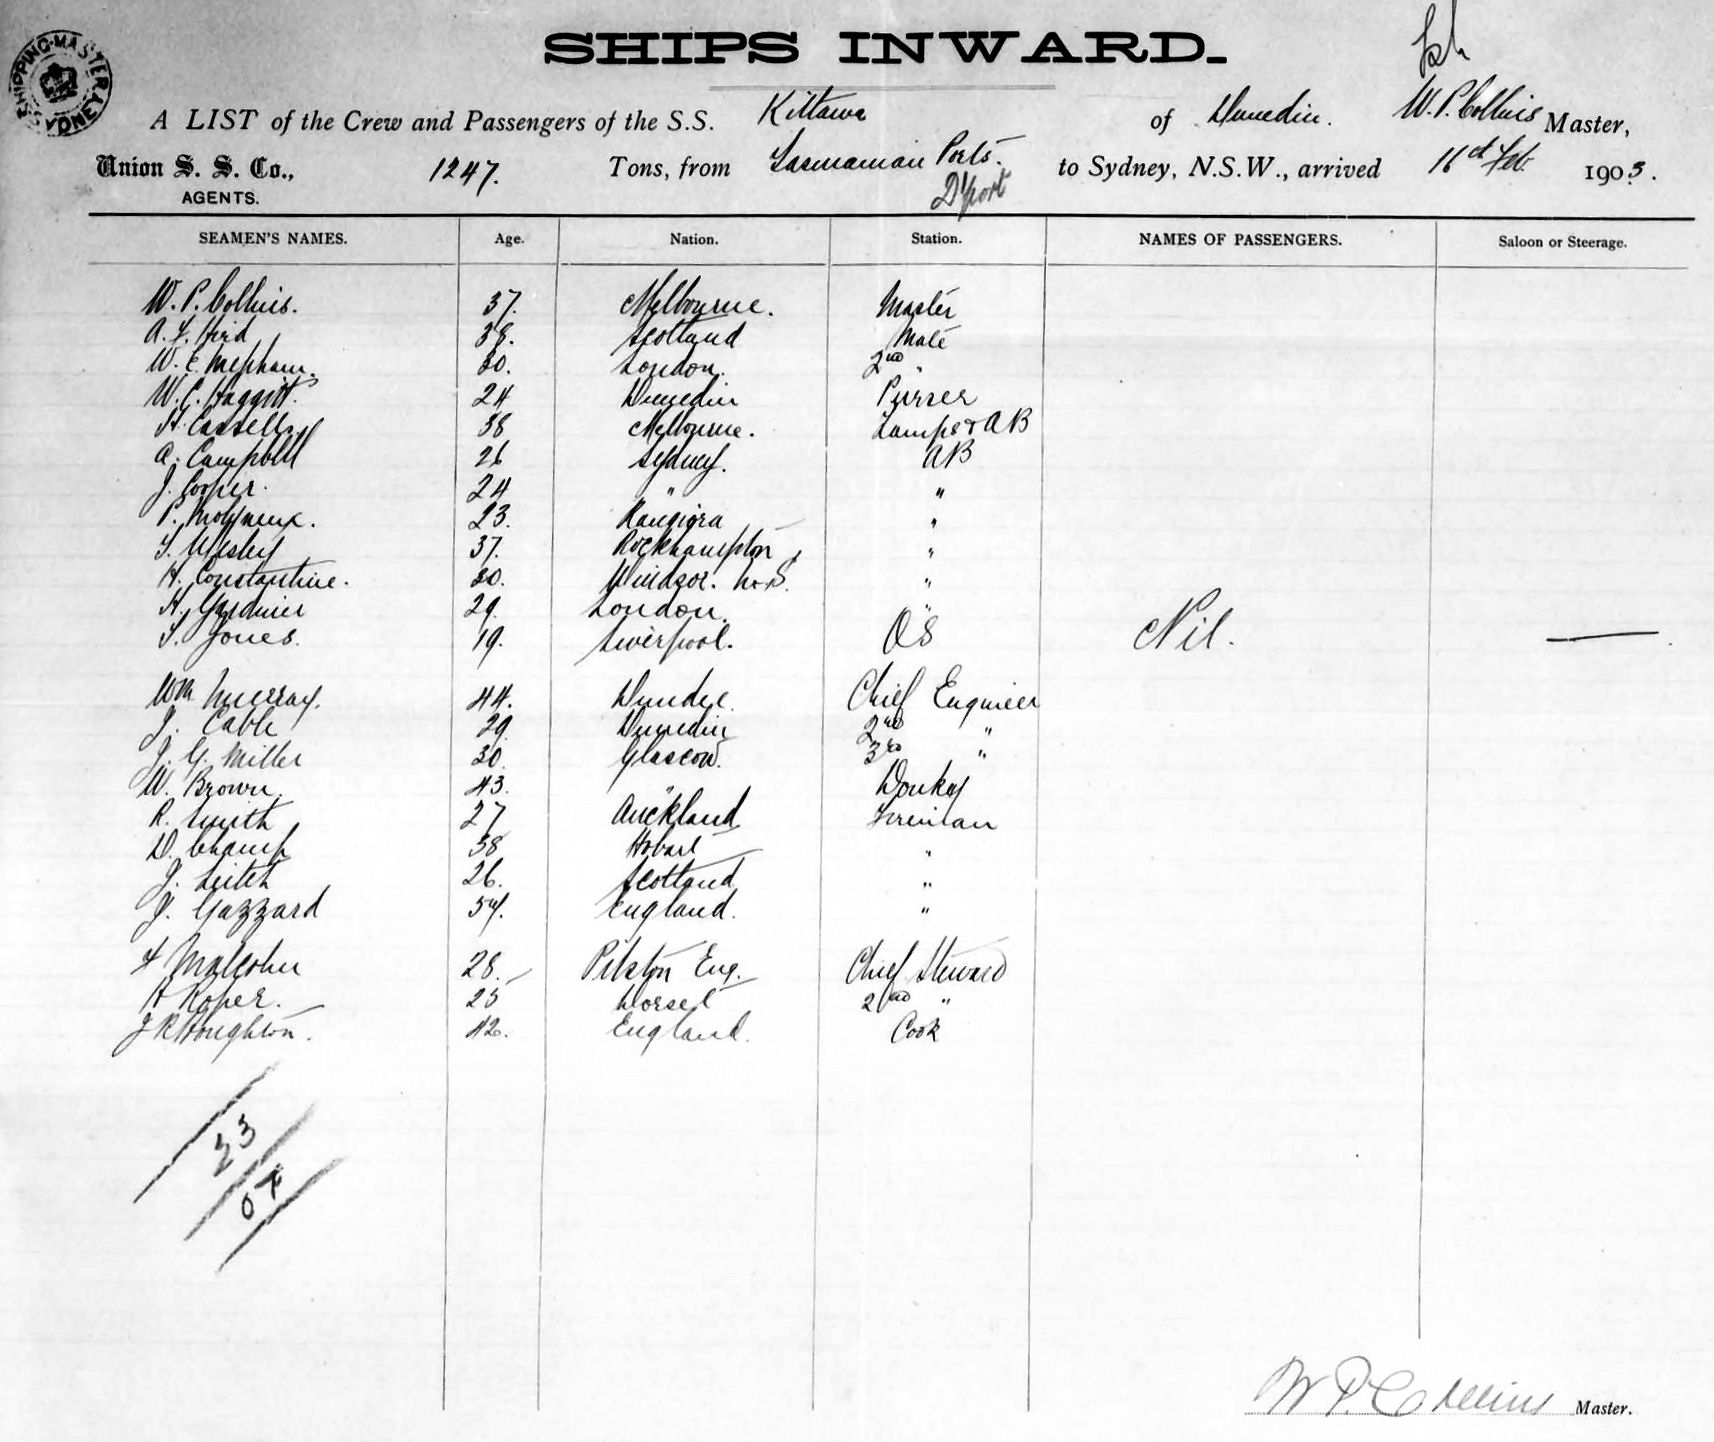 SHIPPING MASTER SYDNEY
SHIPS INWARD.
A LIST of the Crew and Passengers of the S.S. Kittawa of Dunedin. W. P. Collins Master,
Union S. S. Co., 1247. Tons, from Tasmanian Ports. to Sydney, N.S.W., arrived 16 Feb. 1903.
AGENTS. D'port
SEAMEN'S NAMES. Age. Nation. Station. NAMES OF PASSENGERS. Saloon or Steerage.
W. P. Collins. 37. Melbourne. Master
A. F. Hird 38. Scotland Mate
W. E. Mepham. 30. London. 2nd "
W. C. Haggitt. 24 Dunedin Purser
H. Cassells 38 Melbourne. Lamps & AB
A. Campbell 26 Sydney. AB
J. Cooper. 24 " "
P. Molyneux. 23. Rangiora "
T. Wesley 37. Rockhampton "
H. Constantine. 30. Windsor. N.S. "
H. Gardiner 29. London. "
T. Jones. 19. Liverpool. OS Nil. —
Wm Murray. 44. Dundee. Chief Engineer
J. Cable 29. Dunedin 2nd "
J. G. Miller 30. Glascow. 3rd "
W. Brown. 43. " Donkey
R. Smith 27 Auckland Fireman
D. Champ 38 Hobart "
J. Leitch 26. Scotland "
J. Gazzard 54. England. "
F Malcolm 28. Pilston Eng. Chief Steward
H Roper. 25 Dorset 2nd "
J R Houghton. 42. England. Cook
23
W P. Collins Master.